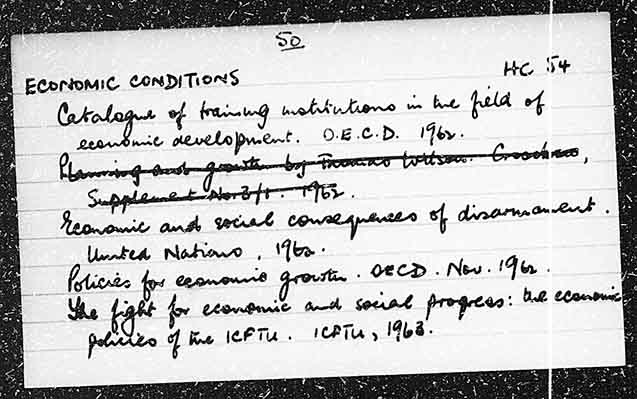 50
ECONOMIC CONDITIONS HC 54
Catalogue of training institutions in the field of
economic development. O.E.C.D. 1962.
Planning and growth by Thomas Wilson.
Supplement No. 3/1. 1962.
Economic and social consequences of disarmament.
United Nations, 1962.
Policies for economic growth. OECD. Nov. 1962.
The fight for economic and social progress: the economic
policies of the ICFTU. ICFTU, 1963.